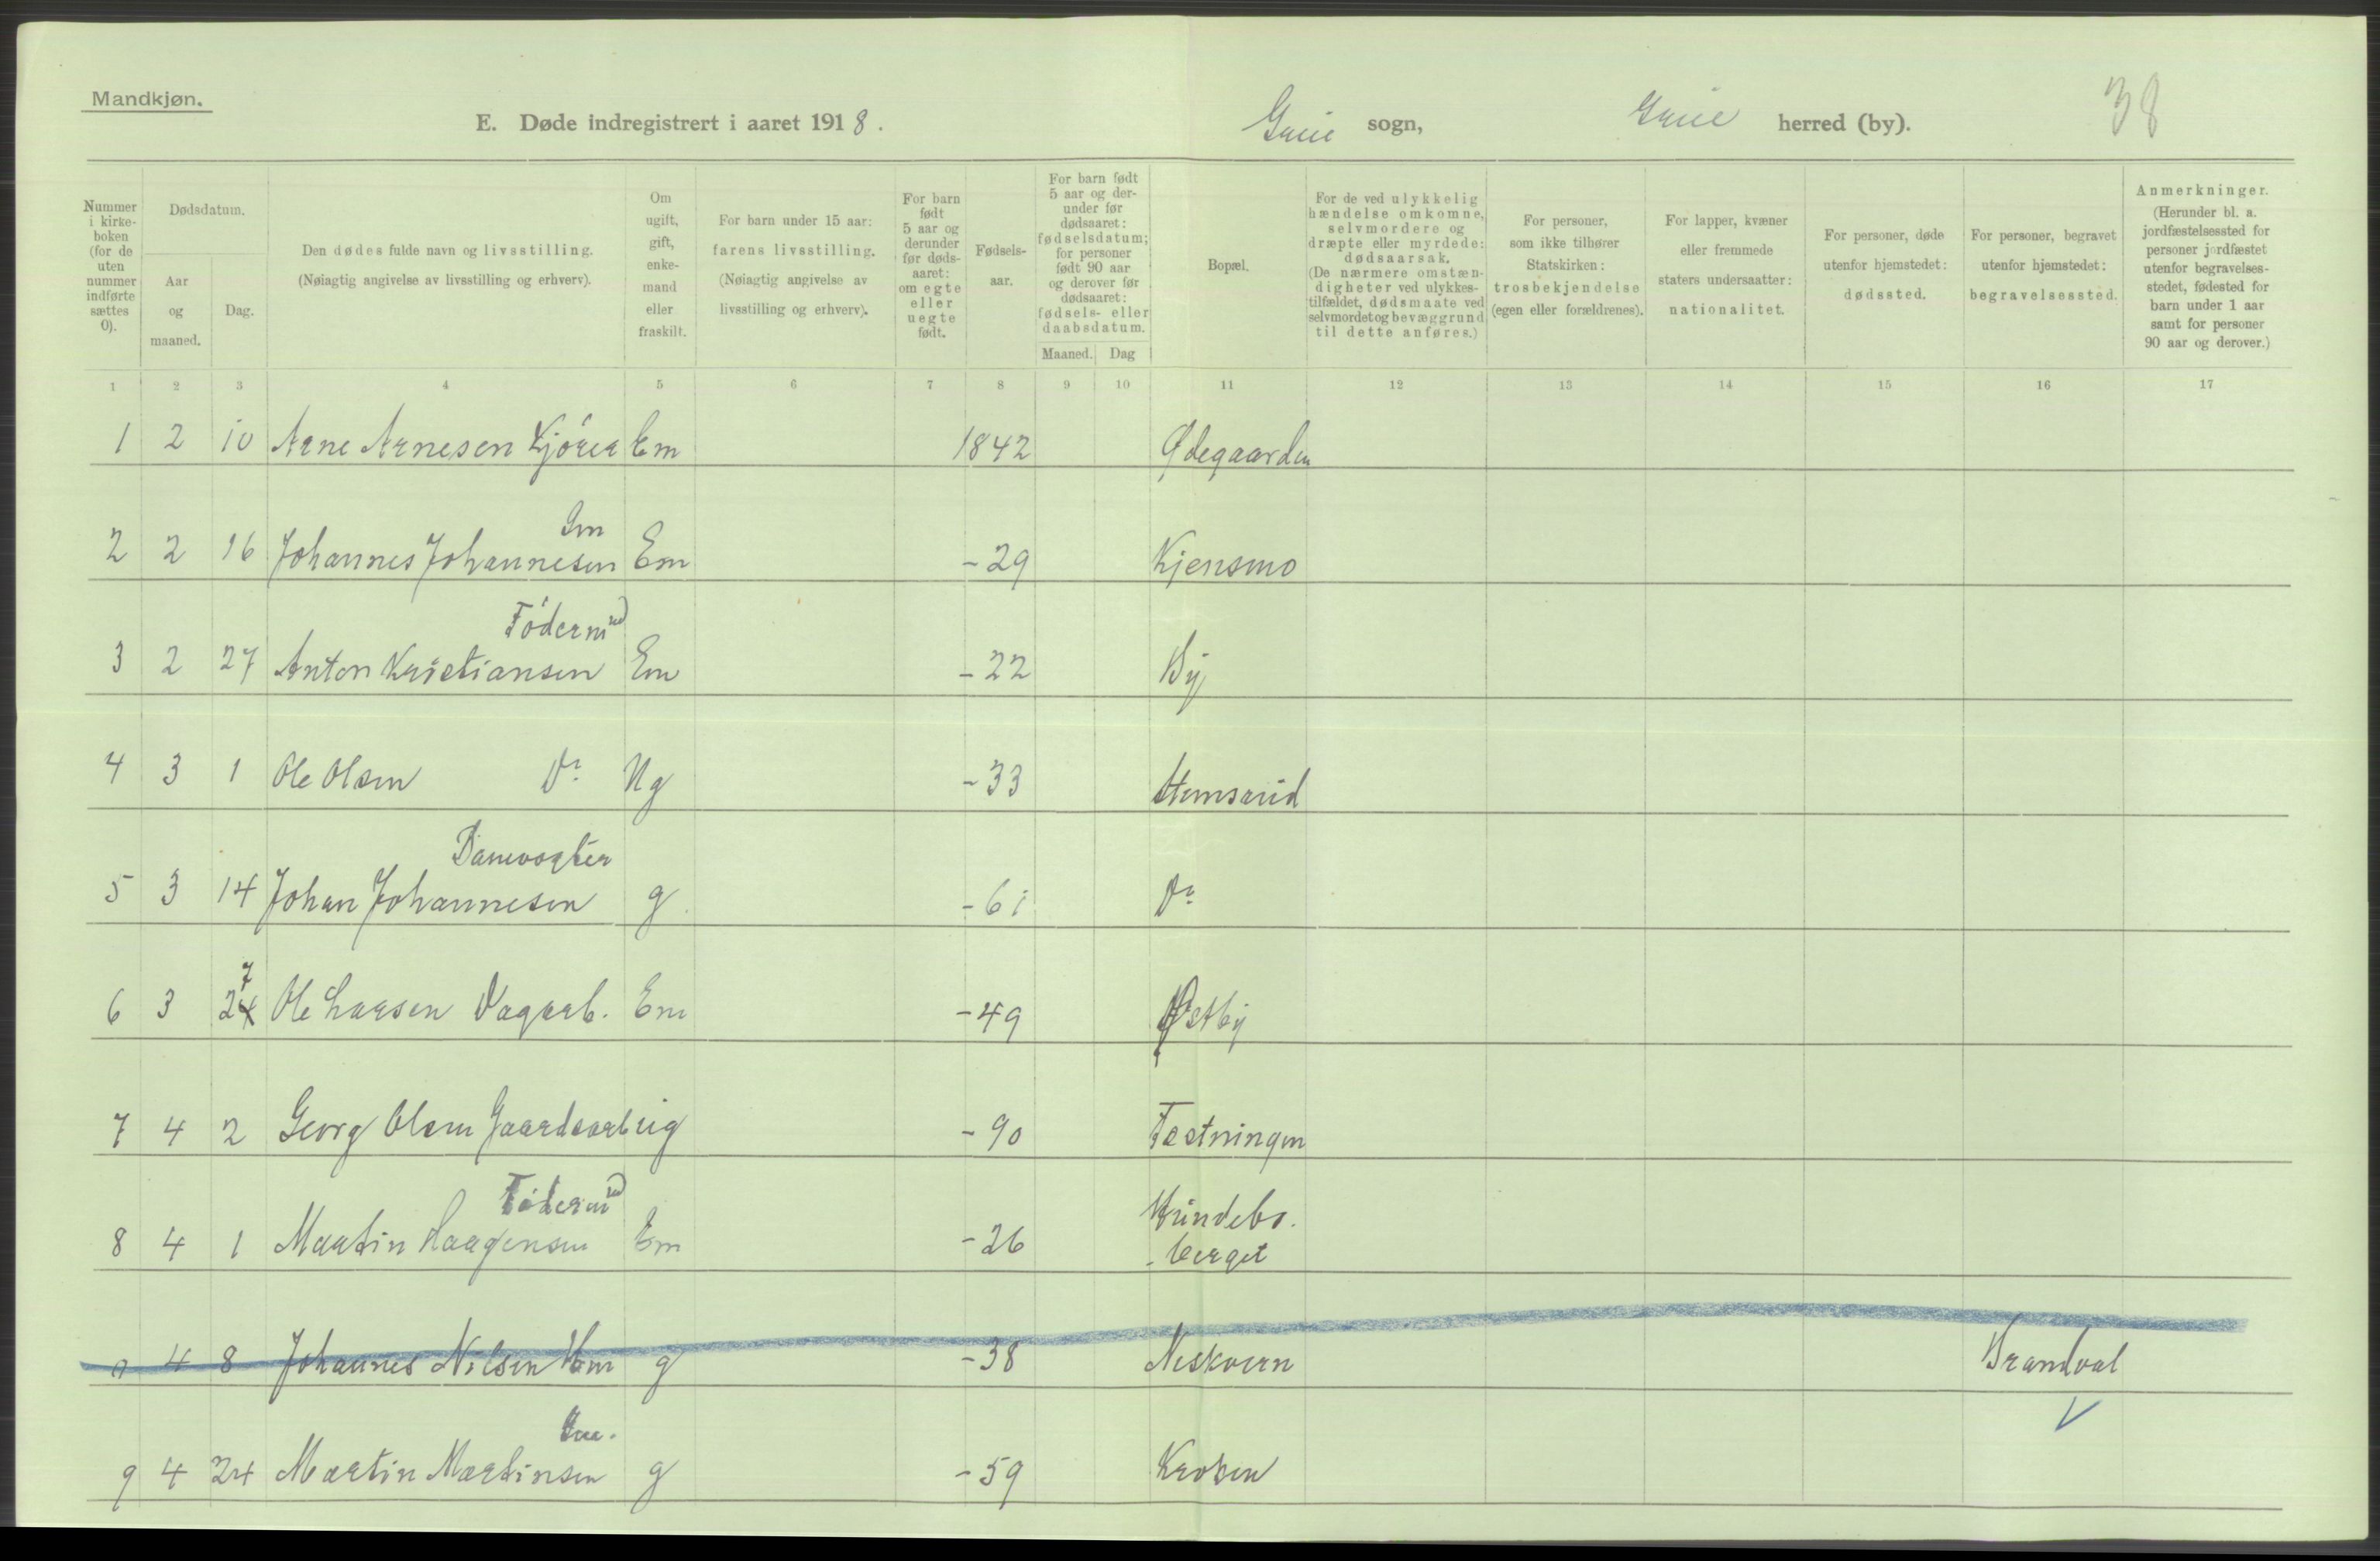 Mandkjøn.
E. Døde indregistrert i aaret 1918.
Grue sogn,
Grue herred (by).
38
Nummer i kirkeboken (for de uten nummer indførte sættes 0).
Dødsdatum.
Aar og maaned.
Dag.
Den dødes fulde navn og livsstilling.
(Nøiagtig angivelse av livsstilling og erhverv).
Om ugift, gift, enkemand eller fraskilt.
For barn under 15 aar: farens livsstilling.
(Nøiagtig angivelse av livsstilling og erhverv).
For barn født 5 aar og derunder før dødsaaret: om egte eller uegte født.
Fødselsaar.
For barn født 5 aar og derunder før dødsaaret: fødselsdatum; for personer født 90 aar og derover før dødsaaret: fødsels- eller daabsdatum.
Maaned. Dag
Bopæl.
For de ved ulykkelig hændelse omkomne, selvmordere og dræpte eller myrdede: dødsaarsak.
(De nærmere omstændigheter ved ulykkestilfældet, dødsmaate ved selvmordet og bevæggrund til dette anføres.)
For personer, som ikke tilhører Statskirken: trosbekjendelse (egen eller forældrenes).
For lapper, kvæner eller fremmede staters undersaatter: nationalitet.
For personer, døde utenfor hjemstedet: dødssted.
For personer, begravet utenfor hjemstedet: begravelsessted.
Anmerkninger.
(Herunder bl. a. jordfæstelsessted for personer jordfæstet utenfor begravelsesstedet, fødested for barn under 1 aar samt for personer 90 aar og derover.)
1 2 3 4 5 6 7 8 9 10 11 12 13 14 15 16 17
1 2 10 Arne Arnesen Kjører Em 1842 Ødegaarden
Gm
2 2 16 Johannes Johannesen Em -29 Kjensmo
Föderm
3 2 27 Anton Kristiansen Em -22 By
4 3 1 Ole Olsen Do Ug -33
Banevogter
5 3 14 Johan Johannesen g -61 Do
7
6 3 24 Ole Larsen Dagarb. Em -49 Østby
7 4 2 Georg Olsen Gaardsarb ug -90 Festningen
Föderm
8 4 1 Martin Haagensen Em -26
-berget
9 4 8 Johannes Nilsen g -38 Neskvern Brandval
9 4 24 Martin Martinsen g -59 Kroken